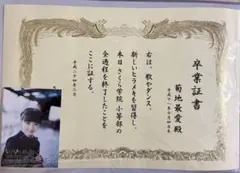 卒業証書
菊地最愛殿
平成十一年七月四日生
右は、歌やダンス、
新しいヒラメキを習得し、
本日さくら学院 小等部の
全過程を修了したことを
ここに証する。
平成二十四年三月